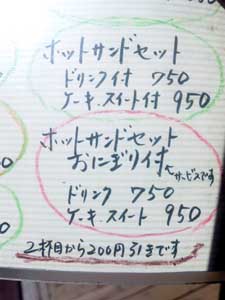 ホットサンドセット
ドリンク付 750
ケーキ.スイート付 950
ホットサンドセット
おにぎり付
サービスです
ドリンク 750
ケーキ.スイート 950
2杯目から200円引きです